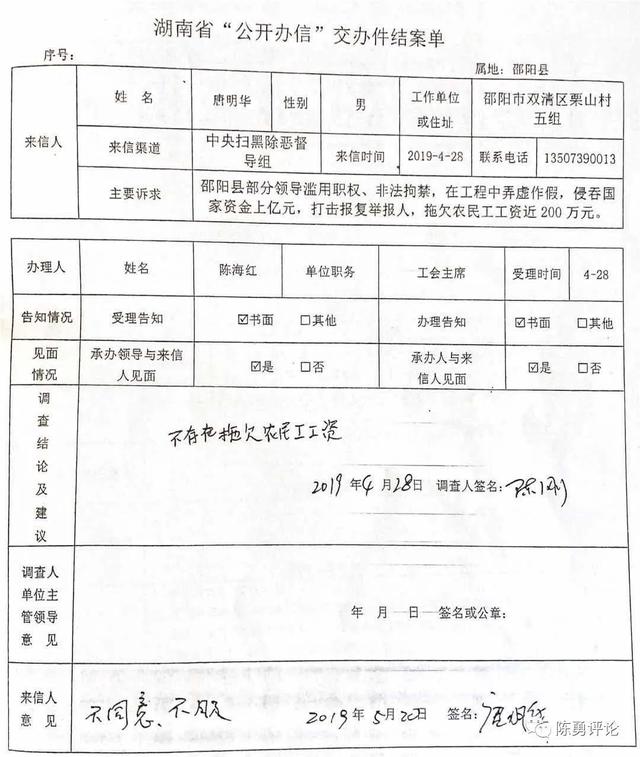 湖南省“公开办信”交办件结案单
序号：
属地：邵阳县
来信人
姓 名
唐明华
性别
男
工作单位
或住址
邵阳市双清区栗山村
五组
来信渠道
中央扫黑除恶督
导组
来信时间
2019-4-28
联系电话
13507390013
主要诉求
邵阳县部分领导滥用职权、非法拘禁，在工程中弄虚作假，侵吞国
家资金上亿元，打击报复举报人，拖欠农民工工资近200万元。
办理人
姓名
陈海红
单位职务
工会主席
受理时间
4-28
告知情况
受理告知
☑书面 □其他
办理告知
☑书面 □其他
见面
情况
承办领导与来信
人见面
☑是 □否
承办人与来
信人见面
☑是 □否
调查结论及建议
不存在拖欠农民工工资
2019年4月28日 调查人签名：
调查人
单位主
管领导
意 见
年 月 日 签名或公章：
来信人
意 见
不同意、不服
2019年5月22日 签名：唐明华
陈勇评论